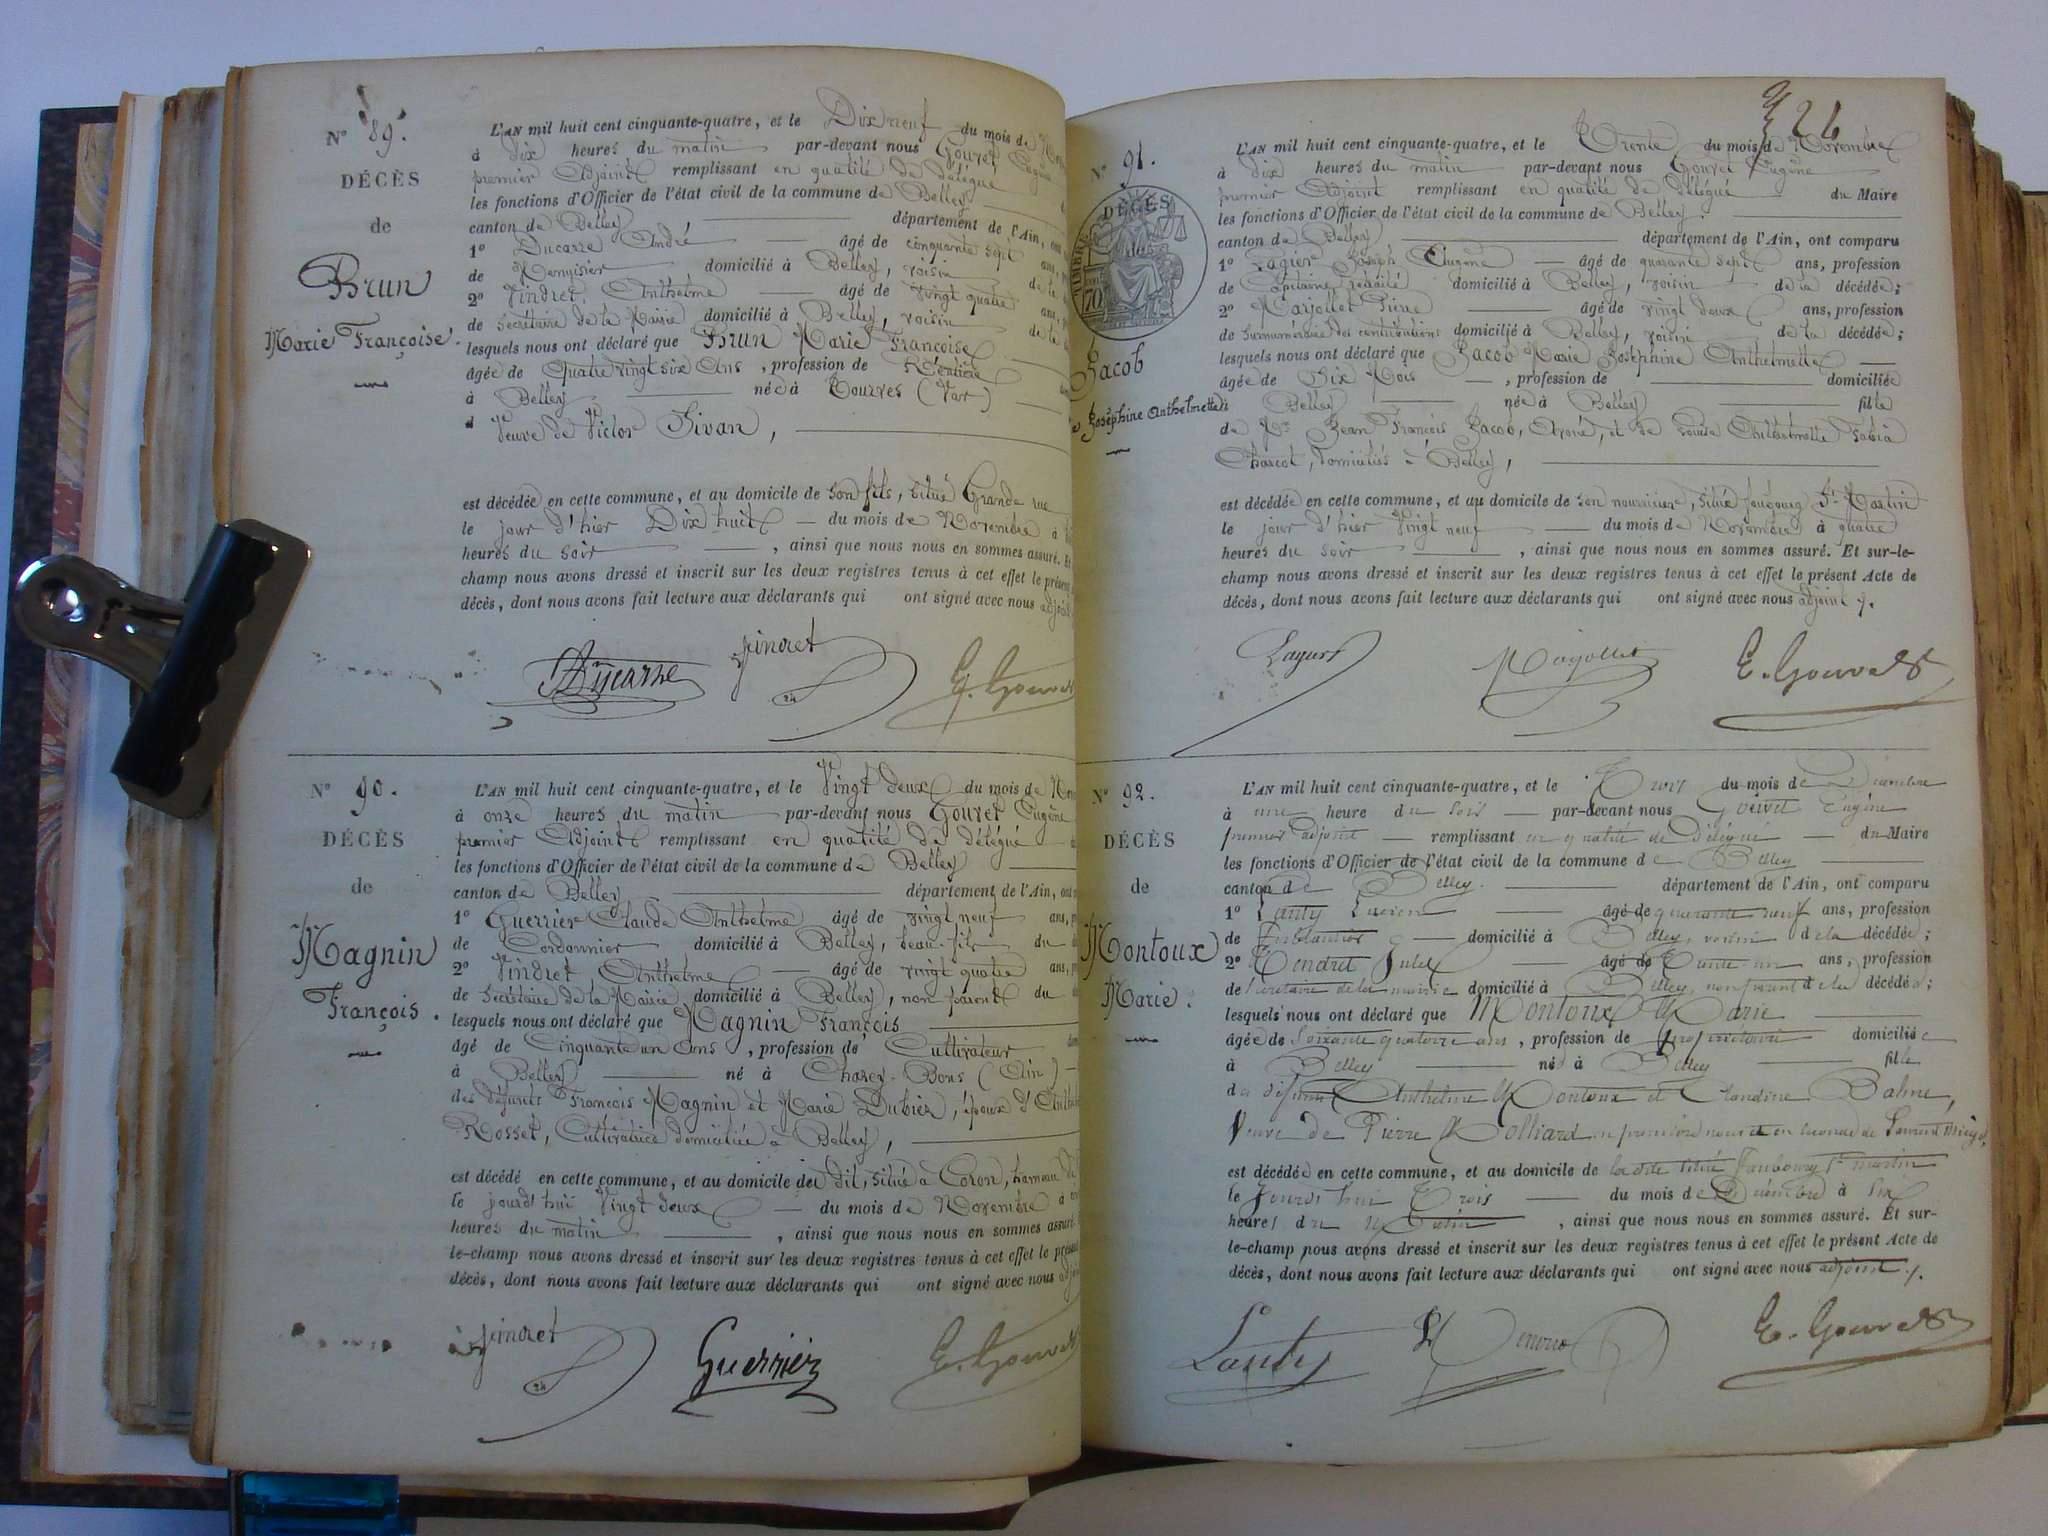 N° 89.
DÉCÈS
de
Brun
Marie Françoise.
L'AN mil huit cent cinquante-quatre, et le Dix neuf du mois de
à dix heures du matin par-devant nous Gouvet Eugène
premier Adjoint remplissant en qualité de délégué
les fonctions d'Officier de l'état civil de la commune de Belley
canton de Belley département de l'Ain,
1° Ducarre André âgé de cinquante sept ans,
de Menuisier domicilié à Belley, voisin de la
2° Vindret Anthelme âgé de vingt quatre ans,
de Secrétaire de la Mairie domicilié à Belley, voisin de la
lesquels nous ont déclaré que Brun Marie Françoise
âgée de Quatre vingt six Ans, profession de Rentière
à Belley née à Tourves (Var)
Veuve de Victor Sivan,
est décédée en cette commune, et au domicile de son fils, situé Grande rue
le jour d'hier Dix huit du mois de Novembre à
heures du soir, ainsi que nous nous en sommes assuré. Et
champ nous avons dressé et inscrit sur les deux registres tenus à cet effet le présent
décès, dont nous avons fait lecture aux déclarants qui ont signé avec nous adjoint
Ducarre Vindret E. Gouvet
N° 90.
DÉCÈS
de
Magnin
François.
L'AN mil huit cent cinquante-quatre, et le Vingt deux du mois de
à onze heures du matin par-devant nous Gouvet Eugène
premier Adjoint remplissant en qualité de délégué
les fonctions d'Officier de l'état civil de la commune de Belley
canton de Belley département de l'Ain, ont
1° Guerrier Claude Anthelme âgé de vingt neuf ans,
de Cordonnier domicilié à Belley, beau-fils du
2° Vindret Anthelme âgé de vingt quatre ans,
de Secrétaire de la Mairie domicilié à Belley, non parent du
lesquels nous ont déclaré que Magnin François
âgé de Cinquante un Ans, profession de Cultivateur
à Belley né à Charey-Bons (Ain)
des défunts François Magnin et Marie Dubier, époux d'
Rosset, Cultivatrice domiciliée à Belley,
est décédé en cette commune, et au domicile du dit, situé à Coron, hameau de
le jourd'hui Vingt deux du mois de Novembre à
heures du matin, ainsi que nous nous en sommes assuré.
le-champ nous avons dressé et inscrit sur les deux registres tenus à cet effet le présent
décès, dont nous avons fait lecture aux déclarants qui ont signé avec nous
Vindret Guerrier E. Gouvet
326
N° 91.
DÉCÈS
TIMBRE
70
Jacob
Joséphine Anthelmette
L'AN mil huit cent cinquante-quatre, et le Trente du mois de Novembre
à dix heures du matin par-devant nous Gouvet Eugène
premier Adjoint remplissant en qualité de délégué du Maire
les fonctions d'Officier de l'état civil de la commune de Belley.
canton de Belley département de l'Ain, ont comparu
1° Lagier Joseph Eugène âgé de quarante sept ans, profession
de Capitaine retraité domicilié à Belley, voisin de la décédée;
2° Marjollet Pierre âgé de vingt deux ans, profession
de Surnuméraire des contributions domicilié à Belley, voisin de la décédée;
lesquels nous ont déclaré que Jacob Marie Joséphine Anthelmette
âgée de Six Mois, profession de domiciliée
à Belley née à Belley fille
de Mr Jean François Jacob, Avoué, et de Louise
Charcot, domiciliés à Belley,
est décédée en cette commune, et au domicile de son nourricier, situé faubourg St Martin
le jour d'hier Vingt neuf du mois de Novembre à quatre
heures du soir, ainsi que nous nous en sommes assuré. Et sur-le-
champ nous avons dressé et inscrit sur les deux registres tenus à cet effet le présent Acte de
décès, dont nous avons fait lecture aux déclarants qui ont signé avec nous adjoint.
E. Gouvet
N° 92.
DÉCÈS
de
Montoux
Marie.
L'AN mil huit cent cinquante-quatre, et le Trois du mois de Décembre
à une heure du soir par-devant nous Gouvet Eugène
premier adjoint remplissant en qualité de Délégué du Maire
les fonctions d'Officier de l'état civil de la commune de Belley
canton de Belley. département de l'Ain, ont comparu
1° Lanty Lucien âgé de quarante neuf ans, profession
de ferblantier domicilié à Belley, voisin de la décédée;
2° Tendret Jules âgé de Trente un ans, profession
de secrétaire de la mairie domicilié à Belley, non parent de la décédée;
lesquels nous ont déclaré que Montoux Marie
âgée de Soixante quatorze ans, profession de propriétaire domiciliée
à Belley née à Belley fille
des défunts Anthelme Montoux et Claudine Balme,
Veuve de Pierre Molliard en première noces et en seconde de Laurent
est décédée en cette commune, et au domicile de la dite situé Faubourg St martin
le jourd'hui Trois du mois de Décembre à six
heures du Matin, ainsi que nous nous en sommes assuré. Et sur-
le-champ nous avons dressé et inscrit sur les deux registres tenus à cet effet le présent Acte de
décès, dont nous avons fait lecture aux déclarants qui ont signé avec nous adjoint.
Lanty E. Gouvet